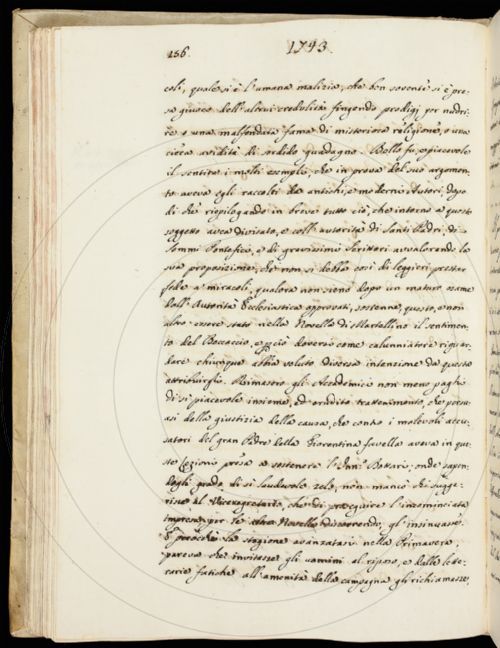 156. 1743.
coli, quale si è l'umana malizia, che ben sovente si è pre=
sa giuoco dell'altrui credulità fingendo prodigj per nudri=
re o una malfondata fama di misteriosa religione, o una
cieca avidità di sordido guadagno. Bello fu, e piacevole
il sentire i molti esempli, che in prova del suo argomen=
to aveva egli raccolti da antichi, e moderni Autori, dopo
di che riepilogando in breve tutto ciò, che intorno a questo
soggetto avea divisato, e coll'autorità di Santi Padri, di
Sommi Pontefici, e di gravissimi Scrittori avvalorando la
sua proposizione, che non si debba così di leggieri prestar
fede a miracoli, qualora non sieno dopo un maturo esame
dall'Autorità Ecclesiastica approvati, sostenne, questo, e non
altro essere stato nella Novella di Martellino il sentimen=
to del Boccaccio, e perciò doversi come calunniatore riguar=
dare chiunque abbia voluto diversa intenzione da questa
attribuirgli. Rimasero gli Accademici non meno paghi
di sì piacevole insieme, ed erudito trattenimento, che persu=
asi della giustizia della causa, che contro i malevoli accu=
satori del gran Padre della Fiorentina favella aveva in que=
sta Lezione presa a sostenere l'Inn: Bottari, onde sapen=
dogli grado di sì laudevole zelo, non mancò chi sugge=
risse al Vicesegretario, che di proseguire l'incominciata
impresa per le altre Novelle discorrendo, gl'insinuasse.
E perocchè la stagione avanzatasi nella Primavera,
pareva che invitasse gli uomini al riposo, e dalle lette=
rarie fatiche all'amenità della campagna gli richiamasse,